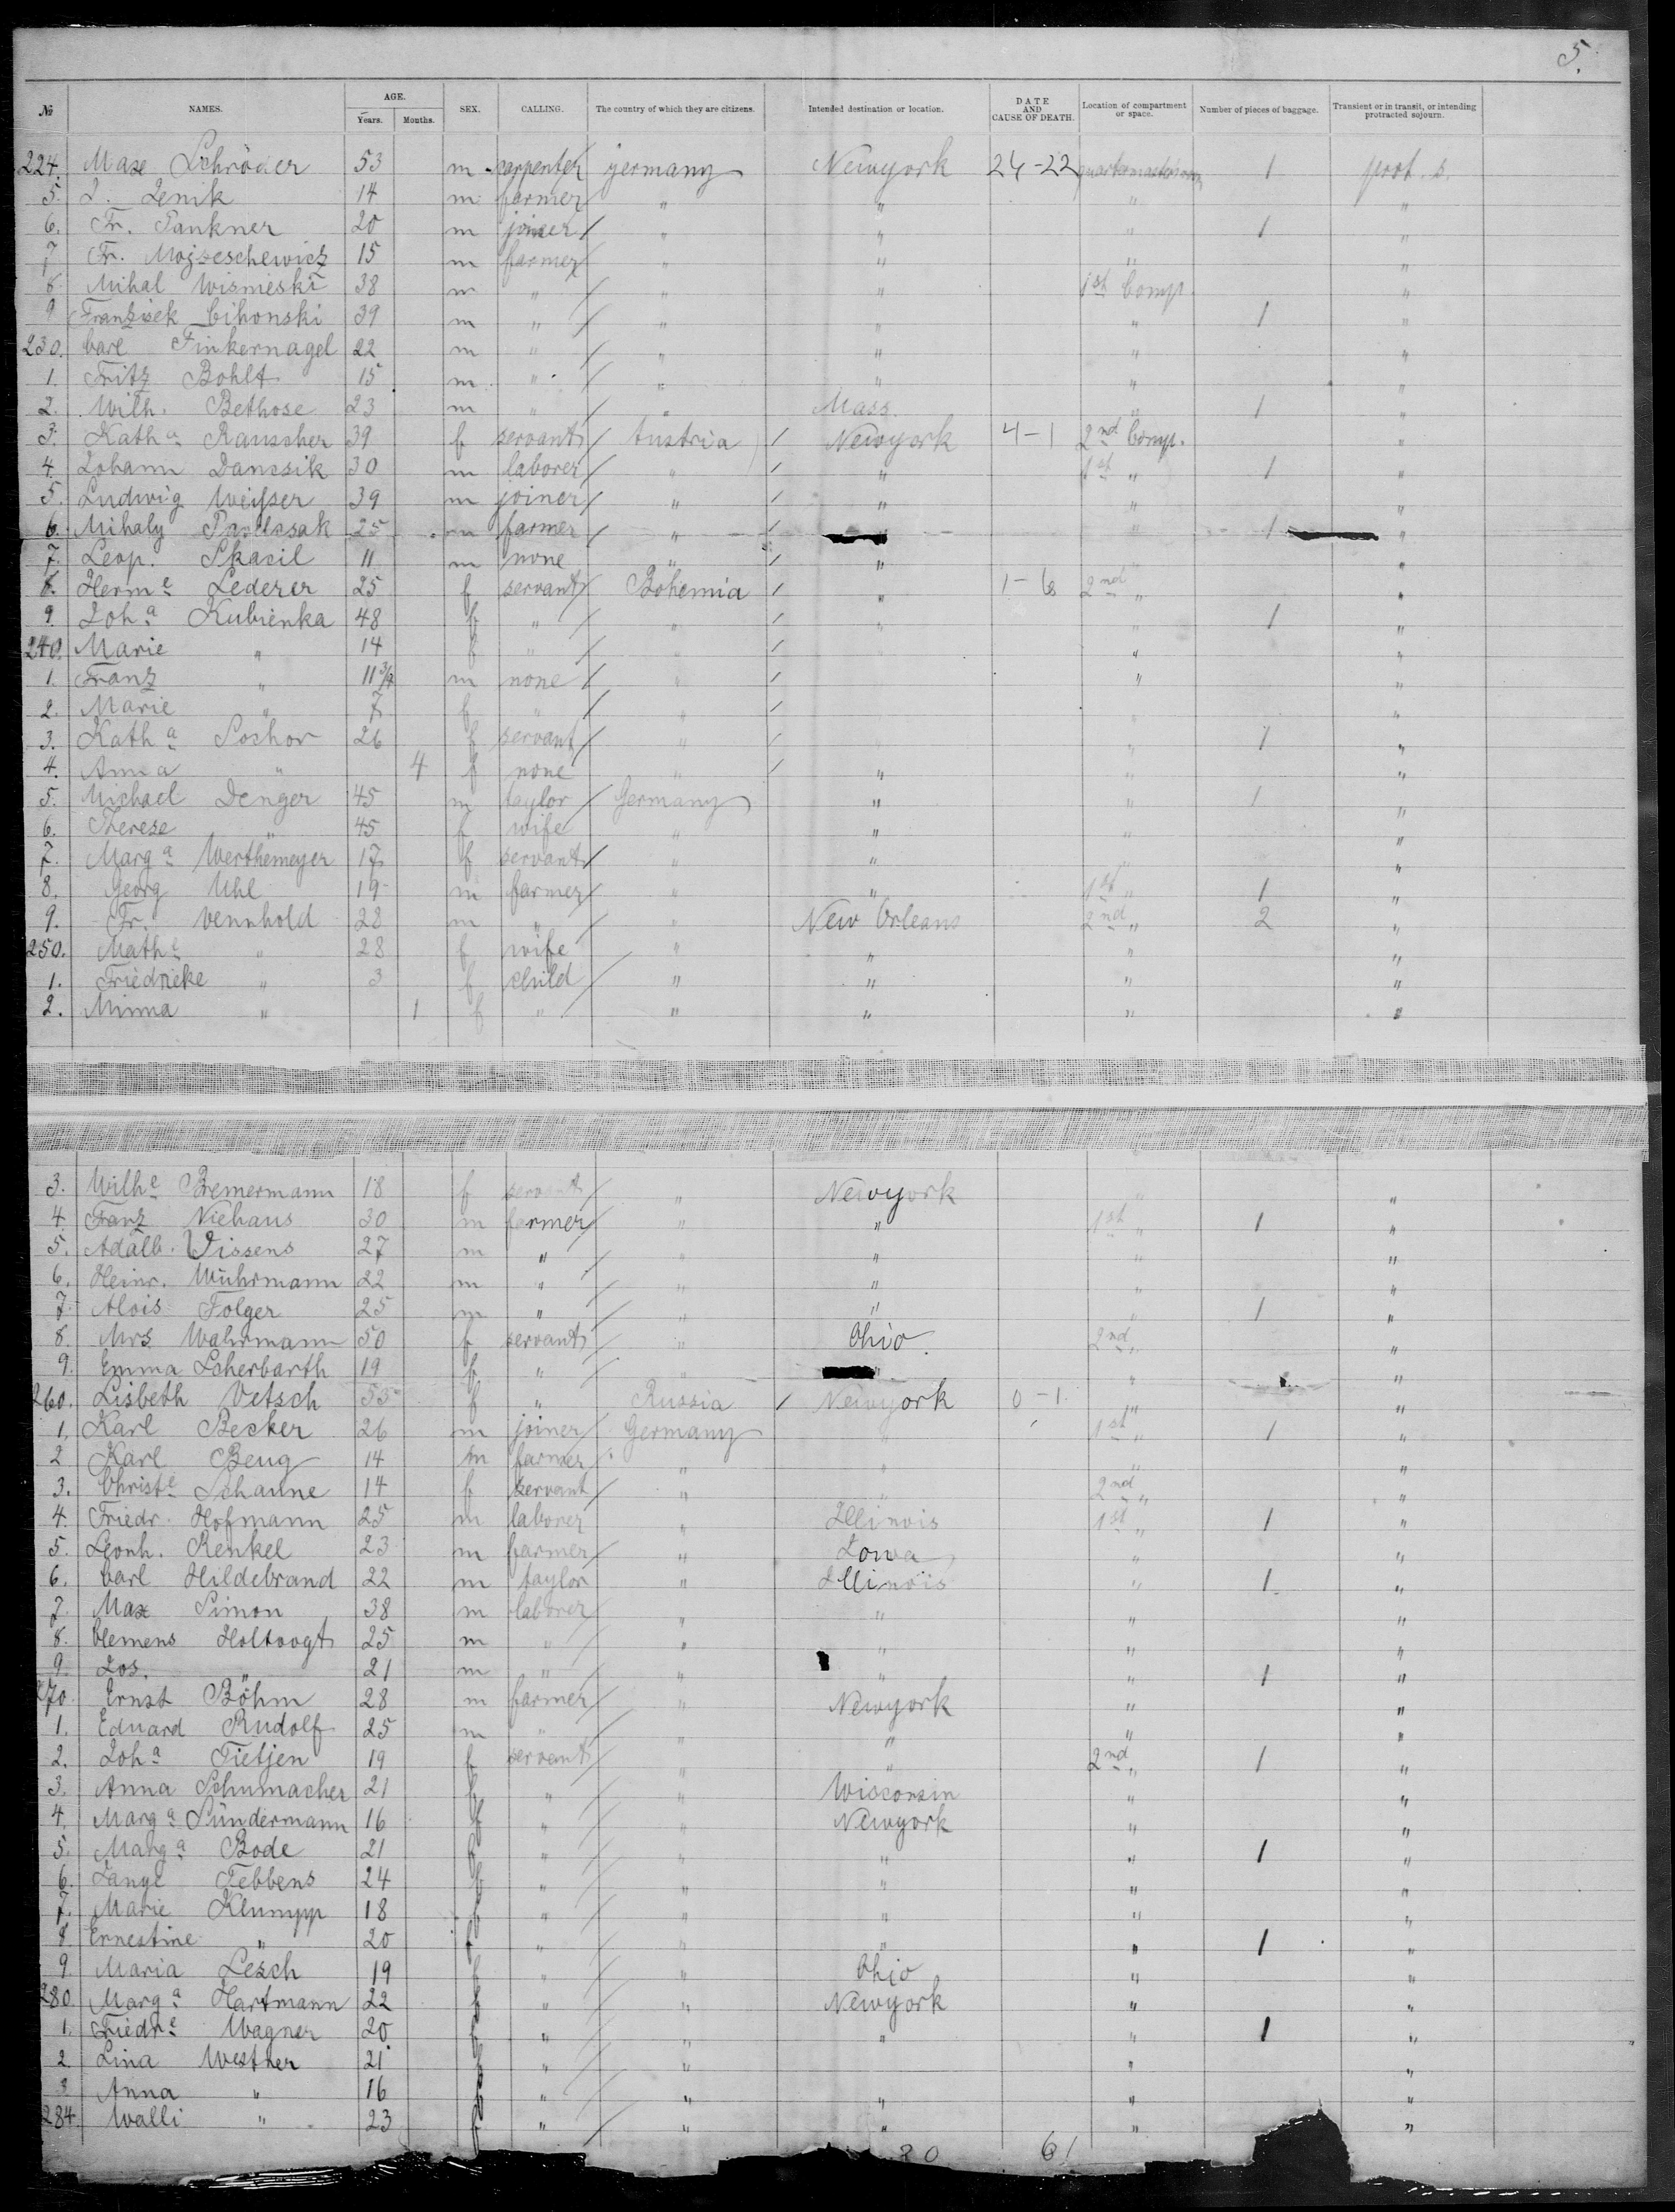 5.
№ NAMES. AGE. Years. Months. SEX. CALLING. The country of which they are citizens. Intended destination or location. DATE AND CAUSE OF DEATH. Location of compartment or space. Number of pieces of baggage. Transient or in transit, or intending protracted sojourn.
224. Max Schröder 53 m carpenter germany Newyork 24-22 1 prot. s.
5. J. Jenik 14 m farmer " " " "
6. Fr. Pankner 20 m joiner " " " 1 "
7. Fr. Mojzeschewicz 15 m farmer " " " "
8. Mihal Wismieski 38 m " " " 1st Comp. "
9 Franzisek Cihonski 39 m " " " " 1 "
230. Carl Finkernagel 22 m " " " " "
1. Fritz Bohlt 15 m " " " " "
2. Wilh. Bethose 23 m " " Mass. " 1 "
3. Katha Rauscher 39 f servant Austria Newyork 4-1 2nd Comp. "
4. Johann Dancsik 30 m laborer " " 1st " 1 "
5. Ludwig Weisser 39 m joiner " " " "
6. Mihaly 25 m farmer " " 1 "
7. Leop. Skacil 11 m none " " "
8. Herme Lederer 25 f servant Bohemia " 1-6 2nd " "
9. Joha Kubienka 48 f " " " 1 "
240. Marie " 14 f " " " "
1. Franz " 11 3/4 m none " " "
2. Marie " 7 f " " "
3. Katha Sochor 26 f servant " " 1 "
4. Anna " 4 f none " " " "
5. Michael Denger 45 m taylor Germany " " 1 "
6. Therese " 45 f wife " " " "
7. Marga Werthemeyer 17 f servant " " " "
8. Georg Uhl 19 m farmer " " 1st " 1 "
9. Fr. Vennhold 28 m " " New Orleans 2nd " 2 "
250. Mathe " 28 f wife " " " "
1. Friedrieke " 3 f child " " " "
2. Minna " 1 f " " " " "
3. Wilhe Bremermann 18 f servant " Newyork " "
4. Franz Niehaus 30 m farmer " " 1st " 1 "
5. Adalb. Vissens 27 m " " " " "
6. Heinr. Wührmann 22 m " " " " "
7. Alois Folger 25 m " " " " 1 "
8. Mrs Wahrmann 50 f servant " Ohio. 2nd " "
9. Emma Scherbarth 19 f " " " " "
260. Lisbeth Vetsch 55 f " Russia Newyork 0-1 " "
1. Karl Becker 26 m joiner Germany " 1st " 1 "
2 Karl Beug 14 m farmer " " " "
3. Christe Schanne 14 f servant " " 2nd " "
4. Friedr. Hofmann 25 m laborer " Illinois 1st " 1 "
5. Leonh. Renkel 23 m farmer " Iowa " "
6. Carl Hildebrand 22 m taylor " Illinois " 1 "
7. Max Simon 38 m laborer " " " "
8. Clemens Holtvogt 25 m " " " " "
9. Jos. " 21 m " " " " 1 "
270. Ernst Böhm 28 m farmer " Newyork " "
1. Eduard Rudolf 25 m " " " " "
2. Joha Tietjen 19 f servant " " 2nd " 1 "
3. Anna Schumacher 21 f " " Wisconsin " "
4. Marga Sündermann 16 f " " Newyork " "
5. Marga Bode 21 f " " " " 1 "
6. Tebbens 24 f " " " " "
7. Marie Klumpp 18 f " " " " "
8. Ernestine " 20 f " " " " 1 "
9. Maria Lesch 19 f " " Ohio " "
280. Marga Hartmann 22 f " " Newyork " "
1. Friedre Wagner 20 f " " " " 1 "
2 Lina Westner 21 f " " " "
3 Anna " 16 f " " " " "
284. Walli " 23 f " " " " "
20 61